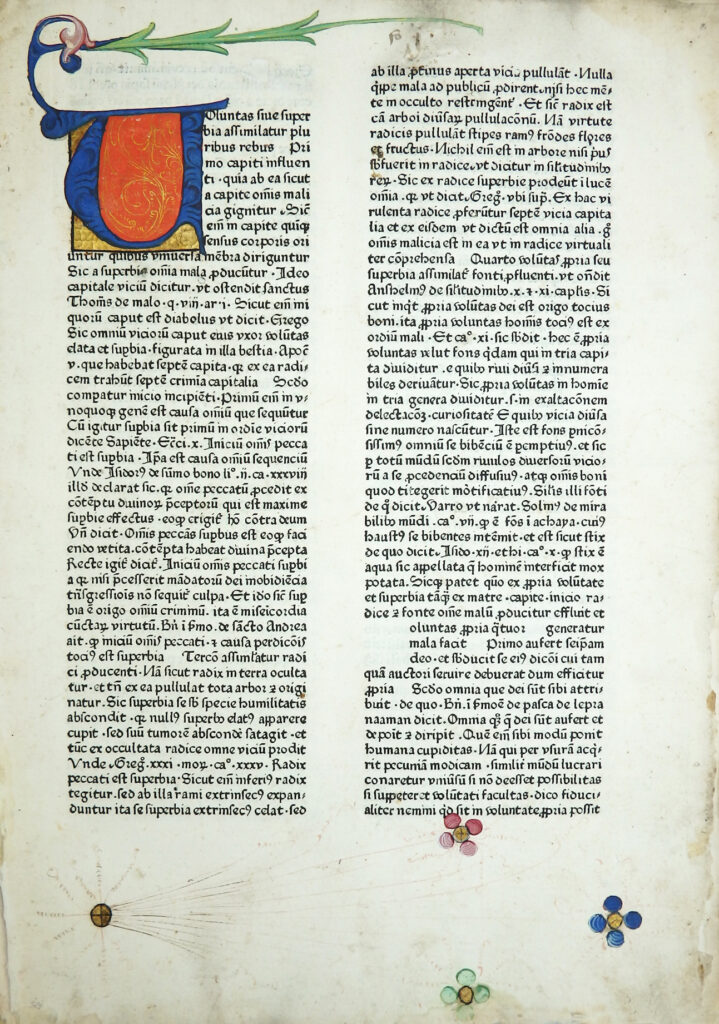 Voluntas siue super
bia assimilatur plu
ribus rebus Pri
mo capiti influen
ti · quia ab ea sicut
a capite om̄is mali
cia gignitur · Sic̄
em̄ in capite quīq
sensus corporis ori
untur quibus vniuersa mēbra diriguntur
Sic a superbia om̄ia mala ꝓducūtur · Ideo
capitale viciū dicitur · vt ostendit sanctus
Thom̄s de malo · q · viij · ar · i · Sicut em̄ ini
quorū caput est diabolus vt dicit · Grego
Sic omniū viciorū caput eius vxor volūtas
elata et supbia · figurata in illa bestia · Apoc̄
v · que habebat septē capita · qꝛ ex ea radi/
cem trahūt septē crimīa capitalia Scd̄o
compatur inicio incipiēti · Primū em̄ in v/
noquoqꝫ genē est causa om̄iū que sequūtur
Cū igitur supbia sit primū in ordīe viciorū
dicēte Sapiēte · Ecc̄i · x · Iniciū om̄is pecca
ti est supbia · Ip̄a est causa om̄iū sequenciū
Vnde · Isidorꝰ de sūmo bono li° · ij · ca · xxxviij
illd̄ declarat sic · qꝫ om̄e peccatū ꝓcedit ex
cōtēptu diuinoꝝ p̄ceptorū qui est maxime
supbie effectus · eoqꝫ erigit̄ hō cōtra deum
Vn̄ dicit · Om̄is peccās supbus est eoqꝫ faci
endo vetita · cōtēpta habeat diuina p̄cepta
Recte igit̄ dicit̄ · Iniciū om̄is peccati supbi
a qꝛ nisi p̄cesserit mādatorū dei inobidiēcia
trn̄sgressiōis nō sequit̄ culpa · Et ido sic̄ sup
bia ē origo om̄iū criminū · ita ē misericordia
cūctaꝝ virtutū · Bn̄ i s̄mo · de sācto Andrea
ait · qꝫ iniciū om̄is peccati · ꝛ causa perdicōis
tociꝰ est superbia Tercō assimlatur radi
ci ꝓducenti · Nā sicut radix in terra oculta
tur · et tn̄ ex ea pullulat tota arbor ꝛ origi
natur · Sic superbia se sb̄ specie humilitatis
abscondit · qꝛ nullꝰ superbꝰ elatꝰ apparere
cupit · sed suū tumorē abscondē satagit · et
tūc ex occultata radice omne viciū prodit
Vnde · Greg̃ · xxxi · moꝝ · ca° · xxxv · Radix
peccati est superbia · Sicut em̄ inferiꝰ radix
tegitur · sed ab illa rami extrinsecꝰ expan/
duntur ita se superbia extrinsecꝰ celat · sed
ab illa ꝓtinus aperta vicia pullulāt · Nulla
q̄ppe mala ad publicū ꝓdirent · nisi hec mē/
te in occulto restringent̄ · Et sic̄ radix est
cā arboi diūsaꝝ pullulacōnū · Nā virtute
radicis pullulāt stipes ramꝰ frōdes flores
et fructus · Nichil em̄ est in arbore nisi p̄us
sb̄fuerit in radice · vt dicitur in silitudīibꝰ
reꝝ · Sic ex radice superbie prodeūt i lucē
om̄ia · qꝫ vt dicit · Greg̃ · vbi supͣ · Ex hac vi
rulenta radice ꝓferūtur septē vicia capita
lia et ex eisdem vt dictū est omnia alia · gͦ
om̄is malicia est in ea vt in radice virtuali
ter cōprehensa Quarto volūtas ꝓpria seu
superbia assimilat̄ fonti ꝓfluenti · vt on̄dit
Anshelmꝰ de silitudīnibꝰ · x · ꝛ · xi · caplis · Si
cut inqͥt ꝓpria volūtas dei est origo tocius
boni · ita ꝓpria voluntas hom̄is tociꝰ est ex
ordiū mali · Et ca° · xi · sic sb̄dit · hec ē ꝓpria
voluntas velut fons qͥdam qui in tria capi/
ta diuiditur · e quibꝰ riui diūsi ꝛ innumera
biles deriuātur · Sic ꝓpria volūtas in homīe
in tria genera diuiditur · s · in exaltacōnem
delectacōꝫ · curiositatē E quibꝰ vicia diūsa
sine numero nascūtur · Iste est fons pn̄icō/
sissimꝰ omniū se bibēciū ē pemptiuꝰ · et sic
p totū mūdū scd̄m riuulos diuersorū vicio/
rū a se ꝓcedenciū diffusiuꝰ · atqꝫ om̄is boni
quod cōtegerit mōtificatiuꝰ · Silis illi fōti
de qͦ dicit · Varro vt nārat · Solinꝰ de mira
bilibꝰ mūdi · ca° · vij · qꝫ ē fōs i achaya · cuiꝰ
haustꝰ se bibentes mtēmit · et est sicut stix
de quo dicit · Isido · xij · ethi · ca° · x · qꝫ stix ē
aqua sic appellata qꝫ hominē interficit mox
potata · Sicqꝫ patet quō ex ꝓpria volūtate
et superbia tāqꝫ ex matre · capite · inicio ra/
dice ꝛ fonte om̄e malū ꝓducitur effluit et
oluntas ꝓpria qͣtuor generatur
mala facit Primo aufert seipam
deo · et sb̄ducit se eiꝰ dicōi cui tam
quā auctori seruire debuerat dum efficitur
ꝓpria Scd̄o omnia que dei sūt sibi attri/
buit · de quo · Bn̄ · i s̄mōe de pasca de lepra
naaman dicit · Omnia qͥ qͣ dei sūt aufert et
de poīt ꝛ diripit · Quē em̄ sibi modū ponit
humana cupiditas · Nā qui per vsurā acqͥ/
rit pecuniā modicam · similit̄ mūdū lucrari
conaretur vniūsū si nō deesset possibilitas
si suppeteret volūtati facultas · dico fiduci/
aliter nemini qͥd sit in voluntate ꝓpria possit